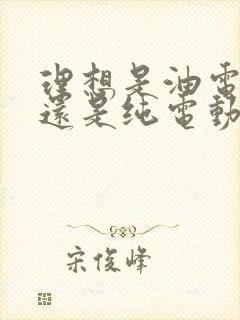 理想是油電
還是純電動
宋俊峰